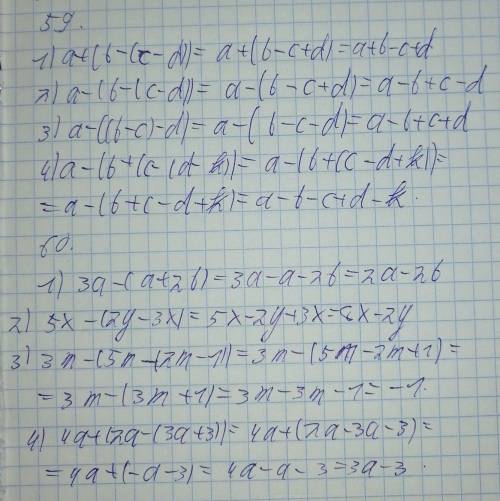 59.
1) a+(b-(c-d))= a+(b-c+d)=a+b-c+d
2) a-(b-(c-d))= a-(b-c+d)=a-b+c-d
3) a-((b-c)-d)= a-(b-c-d)=a-b+c+d
4) a-(b+(c-(d-k))= a-(b+(c-d+k))=
=a-(b+c-d+k)= a-b-c+d-k.
60.
1) 3a-(a+2b)=3a-a-2b=2a-2b
2) 5x-(2y-3x)= 5x-2y+3x=8x-2y
3) 3m-(5m-(2m-1))=3m-(5m-2m+1)=
=3m-(3m+1)=3m-3m-1=-1.
4) 4a+(2a-(3a+3))= 4a+(2a-3a-3)=
=4a+(-a-3)= 4a-a-3=3a-3.